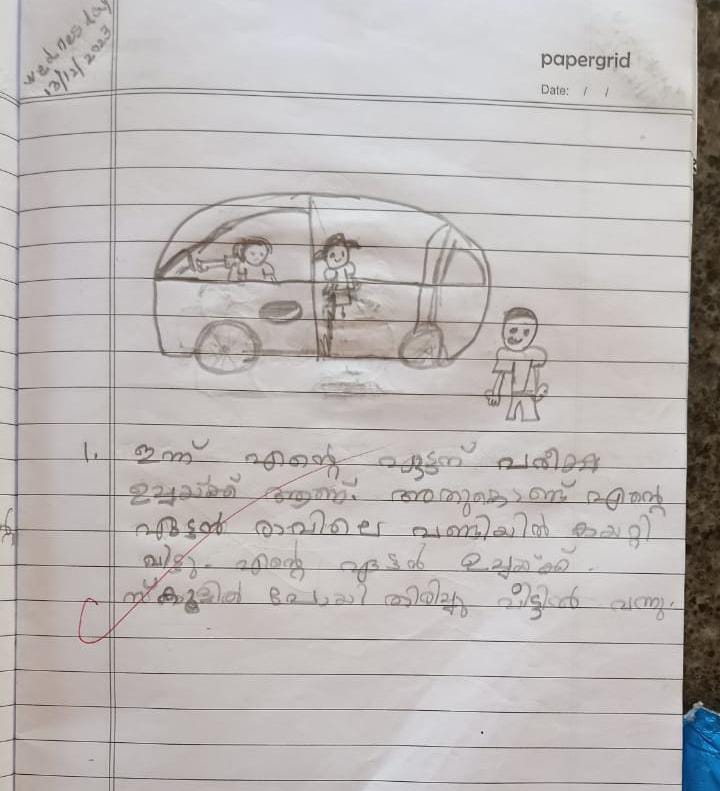 Wednesday
13/12/2023
papergrid
Date: / /
1. ഇന്ന് എന്റെ ഏട്ടന് പരീക്ഷ
ഉച്ചയ്ക്ക് ആണ്. അതുകൊണ്ട് എന്റെ
ഏട്ടൻ രാവിലെ വണ്ടിയിൽ കയറ്റി
വിട്ടു. എന്റെ ഏട്ടൻ ഉച്ചയ്ക്ക്.
സ്കൂളിൽ പോയി തിരിച്ചു വീട്ടിൽ വന്നു.